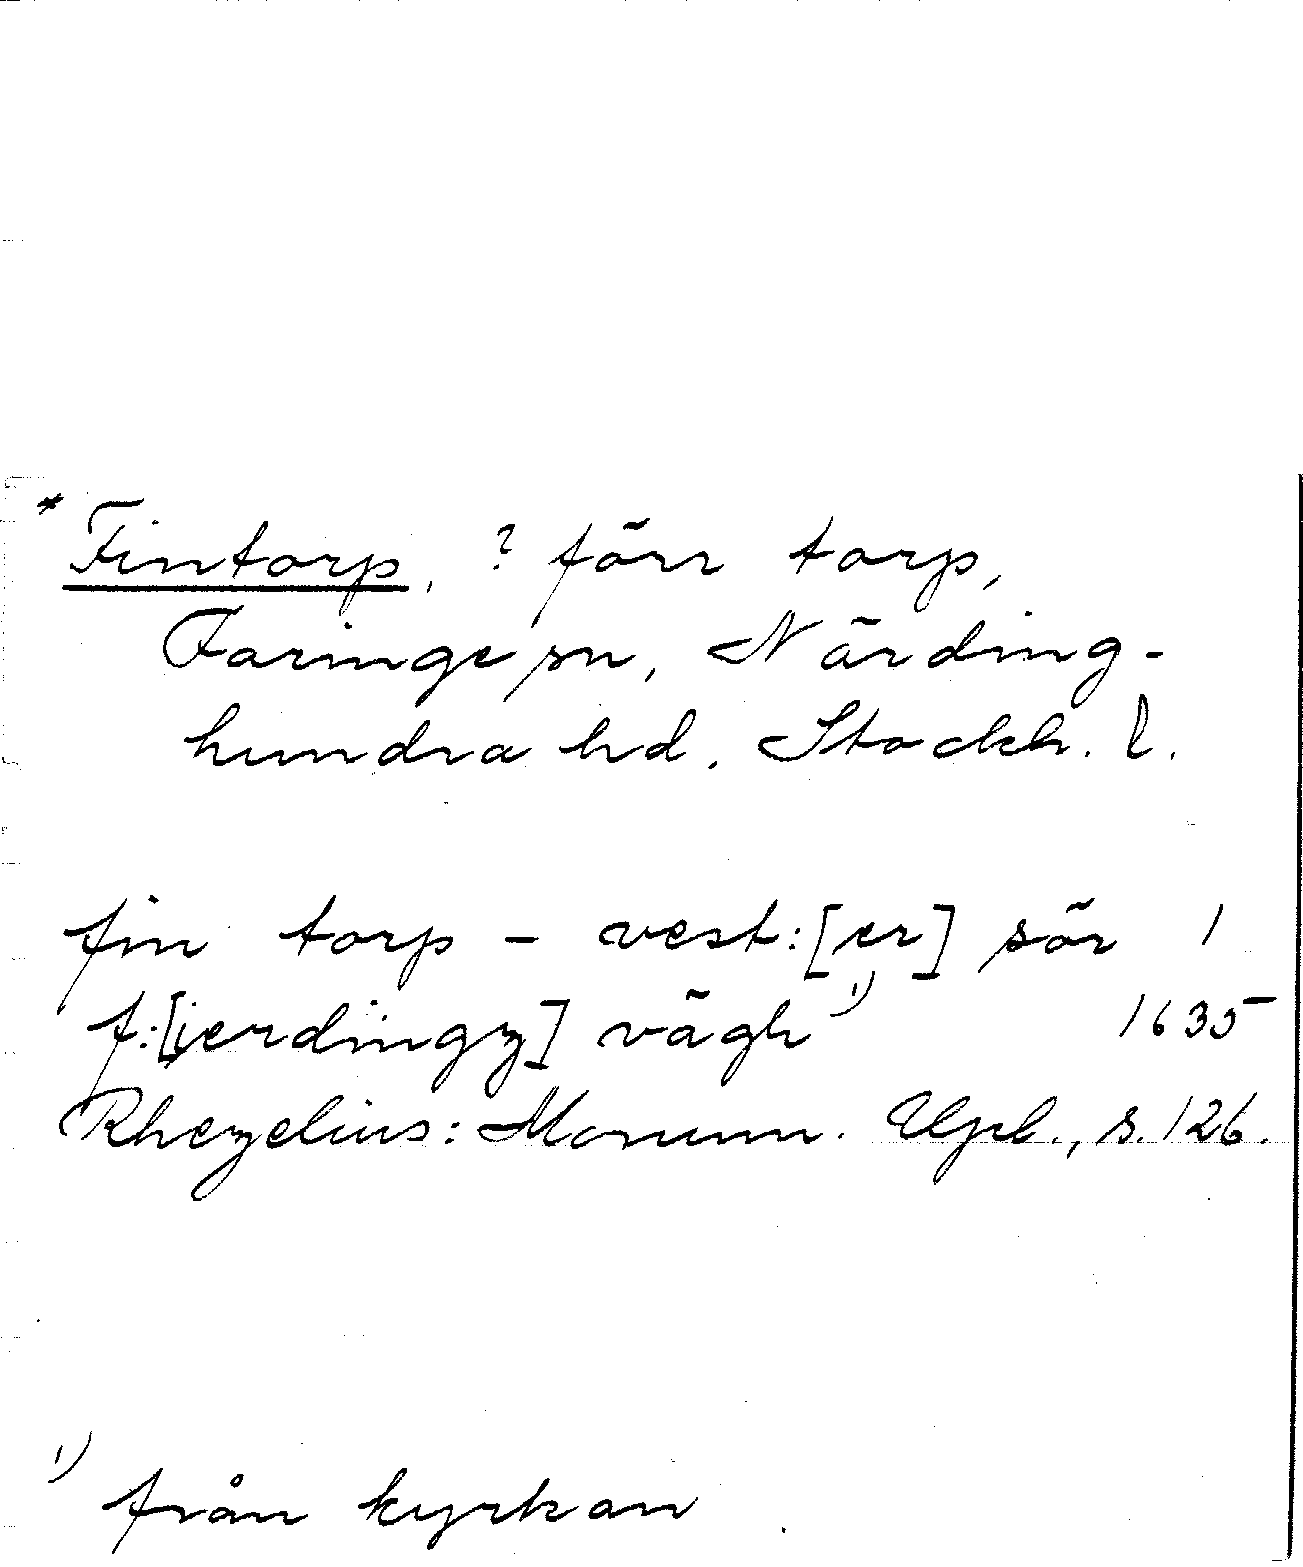 * Fintorp, ? förr torp,
Faringe sn, Närding-
hundra hd, Stockh. l.
fin torp - vest:[er] sör 1
f:[jerdingz] vägh 1) 1635
Rhezelius: Monum. Upl., s. 126.
1) från kyrkan